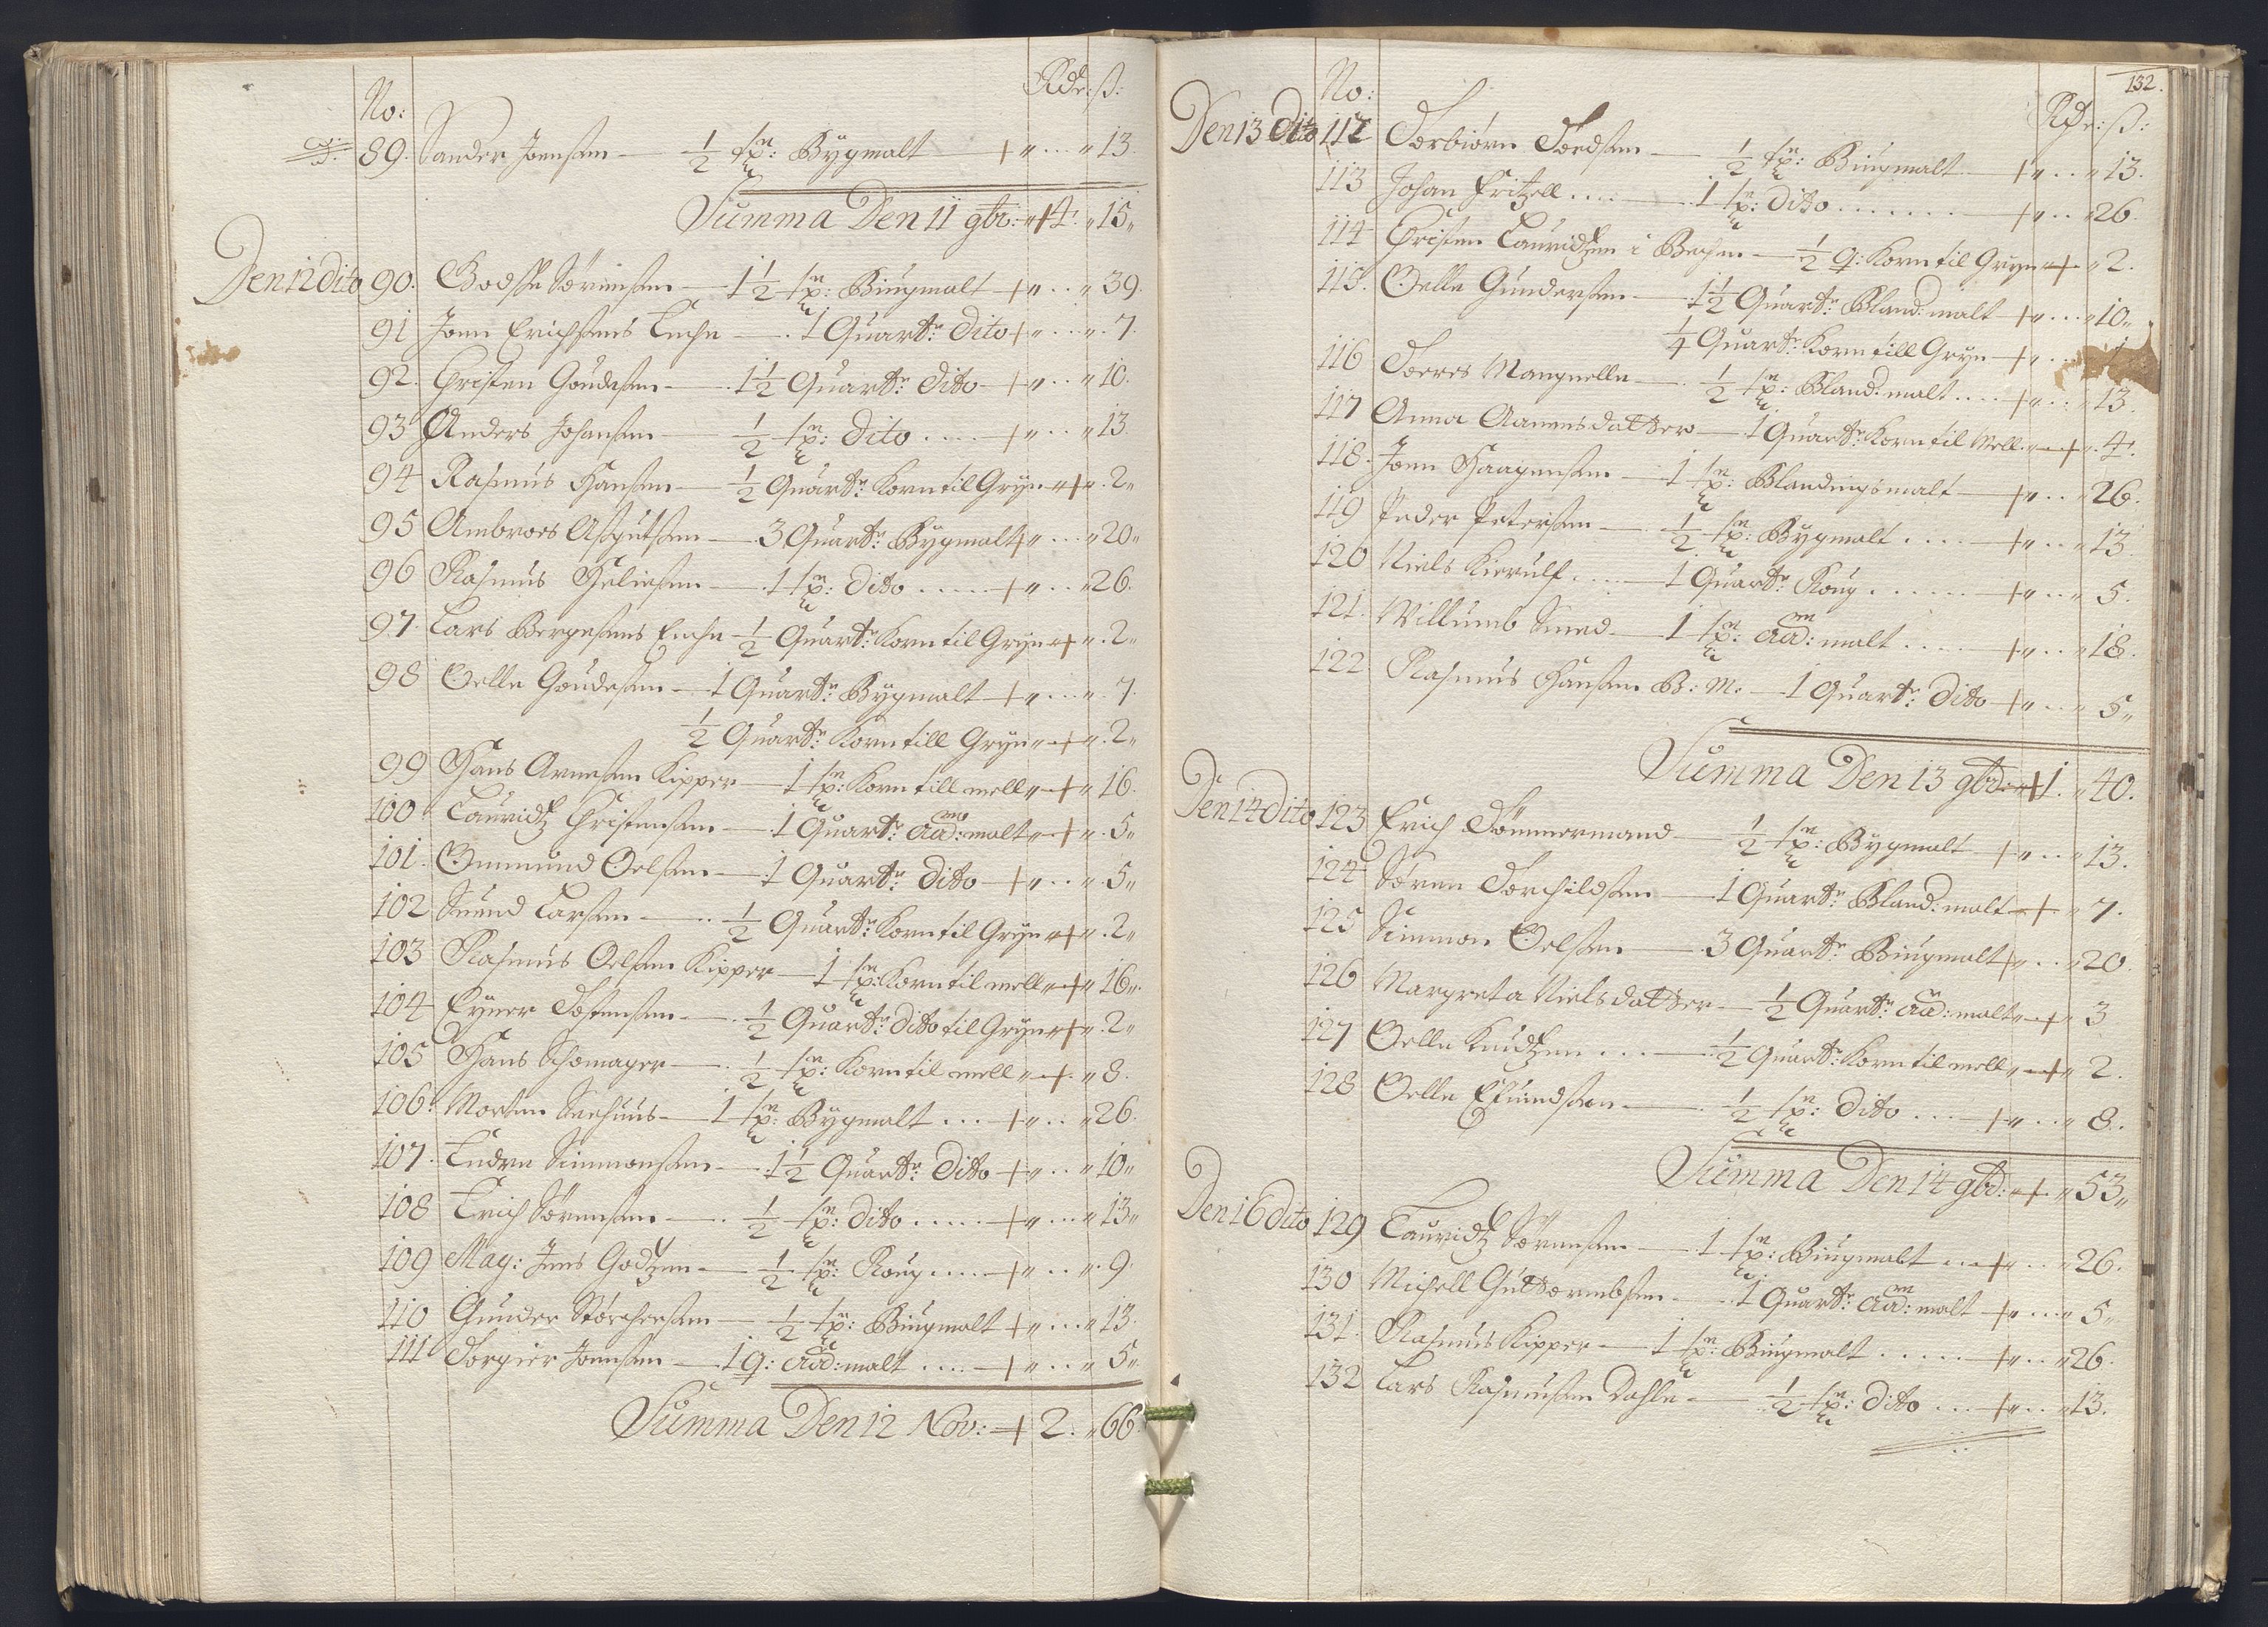 No: Rdr: ß:
89. Sander Joensen — ½ tn: Bygmalt + „ ... „ 13.
Summa Den 11 9br: + 4. „ 15„
Den 12 dito 90. Sörensen — 1½ tn: Biugmalt + „ .. „ 39.
91 Joen Erichsens Enche — 1 Quartr: Dito + „ ... „ 7.
92. Christen Goudesen — 1½ Quartr: Dito + „ .. „ 10.
93 Anders Johansen — ½ tn: Dito .... + „ .. „ 13
94 Rasmus Hansen — ½ Quartr: Korn til Gryn „ + „ 2„
95 Ambroes Asgutsen — 3 Quartr: Bygmalt + „ ... „ 20„
96 Rasmus Heliesen — 1 tn: dito ..... + „ .. „ 26.
97. Lars Bergesens Enche — ½ Quartr: Korn til Gryn „ + „ 2„
98 Oelle Goudesen — 1 Quartr: Bygmalt + „ ... „ 7.
½ Quartr: Korn till Gryn „ + „ 2„
99 Hans Arnesen Kipper — 1 tn: Korn till mell „ + „ 16.
100 Lauridtz Christensen — 1 Quartr: Aad: malt „ + „ 5„
101. Ommund Oelsen — 1 Quartr: Dito + „ .. „ 5„
102 Suend Larsen — ½ Quartr: Korn til Gryn „ + „ 2„
103 Rasmus Oelsen Kipper — 1 tn: Korn til mell „ + „ 16„
104 Eyner Tostensen — ½ Quartr: ditto til Gryn „ + „ 2„
105 Hans Schomager — ½ tn: Korn til mell „ + „ 8.
106. Morten Seehuus — 1 tn: Bygmalt ... + „ .. „ 26.
107. Endre Simmonsen — 1½ Quartr: Dito + „ .. „ 10„
108 Erich Sörensen — ½ tn: dito ..... + „ ... „ 13„
109 Mag: Jens Godtzen — ½ tn: Roug ..... + „ ... „ 9.
110 Gunder Störchersen — ½ tn: Biugmalt + „ ... „ 13.
111 Torgier Joensen — 1 q: Aad: malt .... + „ ... „ 5„
Summa Den 12 Nov: + 2. „ 66
132.
No: Rdr: ß:
Den 13 Dito 112 Torbiörn Toedsen — ½ tn: Biugmalt + „ .. „ 13.
113 Johan Fritzell .... — 1 tn: dito ....... + „ .. „ 26.
114 Christen Lauridtzen i — ½ q: Korn til Gryn „ + „ 2.
115. Oelle Gundersen — 1½ Quartr: Bland: malt + „ ... „ 10„
¼ Quartr: Korn till Gryn + „ ... 1
116 Mangnelle — ½ tn: Bland: malt .... + „ .. „ 13.
117 Anna Aanensdatter — 1 Quartr: Korn til Mell „ + „ 4.
118. Joen Haagensen — 1 tn: Blandingsmalt + „ .. „ 26.
119 Peder Petersen — ½ tn: Bygmalt .... + „ .. „ 13.
120 Niels Kierulf .... — 1 Quartr: Roug ...... + „ .. „ 5.
121. Willumb Smed — 1 tn: Aad: malt ..... + „ .. „ 18.
122 Rasmus Hansen B: M: — 1 Quartr: Dito + „ .. „ 5„
Summa Den 13 9br: + 1. „ 40.
Den 14 Dito 123 Erich Tömmermand — ½ tn: Bygmalt + „ .. „ 13.
124 Sören Torchildsen — 1 Quartr: Bland: malt + „ 7.
125 Simmon Oelsen — 3 Quartr: Biugmalt + „ .. „ 20.
126 Margreta Nielsdatter — ½ Quartr: Aad: malt „ + „ 3
127 Oelle Knudtzen ... — ½ Quartr: Korn til mell „ + „ 2.
128 Oelle — ½ tn: dito .... + „ .. „ 8.
Summa Den 14 9br: „ + „ 53„
Den 16 Dito 129 Lauridtz Sörensen — 1 tn: Biugmalt .. + „ .. „ 26.
130 Michell Guttormbsen — 1 Quartr: Aad: malt + „ ... „ 5„
131. Rasmus Kipper — 1 tn: Biugmalt ..... + „ .. „ 26.
132 Lars Rasmusen Dahle — ½ tn: Dito ... + „ .. „ 13.